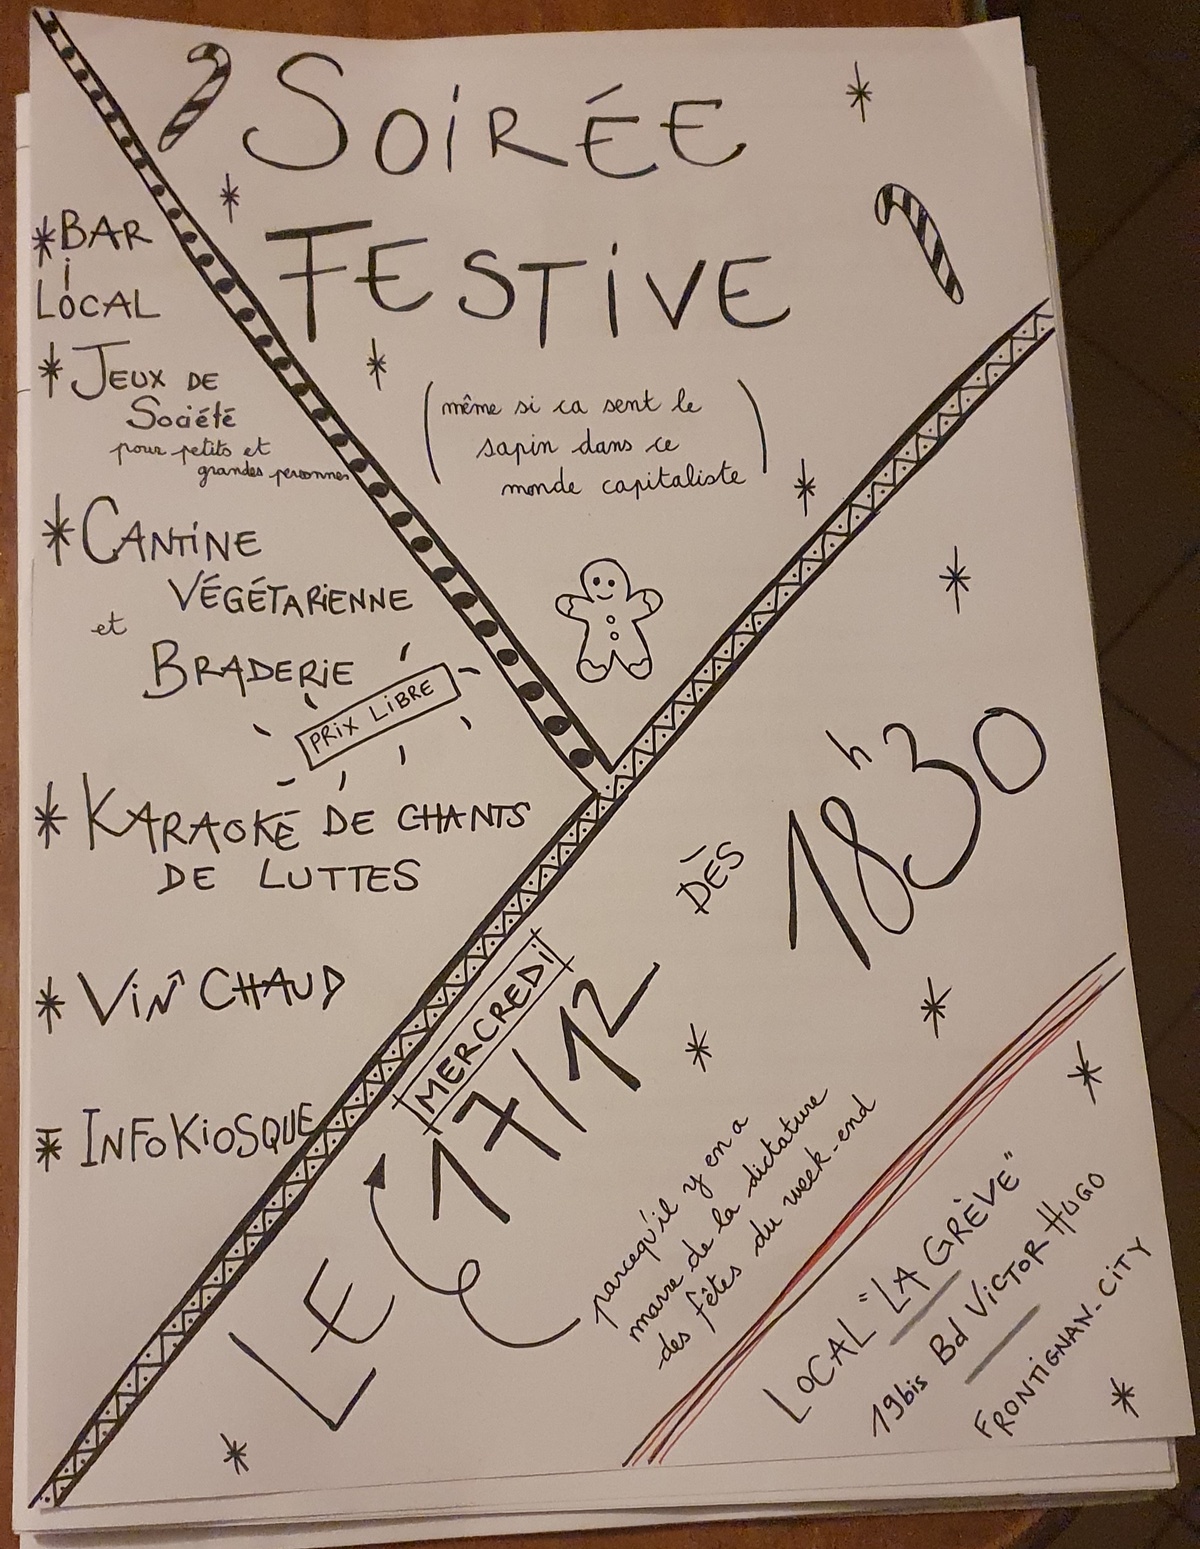 SOIRÉE
FESTIVE
(même si ca sent le
sapin dans ce
monde capitaliste)
*BAR
LOCAL
* JEUX DE
Société
pour petits et
grandes personnes
* CANTINE
VÉGÉTARIENNE
et
BRADERIE
PRIX LIBRE
* KARAOKÉ DE CHANTS
DE LUTTES
* VIN CHAUD
* INFOKIOSQUE
DÈS 18h30
LE MERCREDI
17/12
parcequ'il y en a
marre de la dictature
des fêtes du week-end
LOCAL "LA GRÈVE"
19bis Bd VICTOR HUGO
FRONTIGNAN-CITY